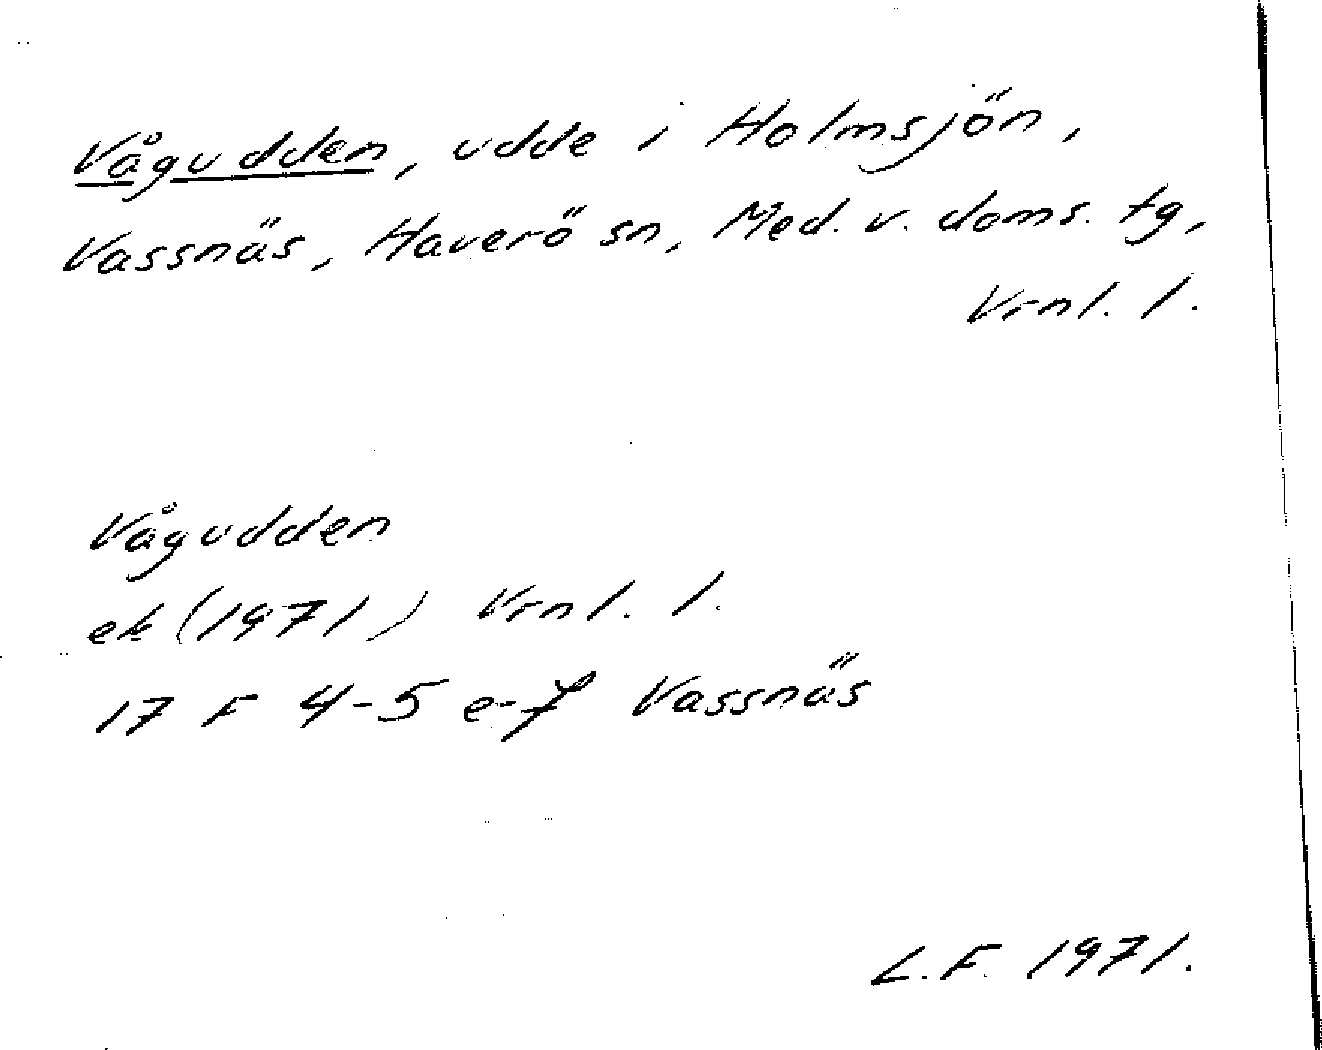 Vågudden, udde i Holmsjön,
Vassnäs, Haverö sn, Med. v. doms. tg,
Vrnl. l.
Vågudden
ek (1971) Vrnl. l.
17 F 4-5 e-f Vassnäs
L.F. 1971.